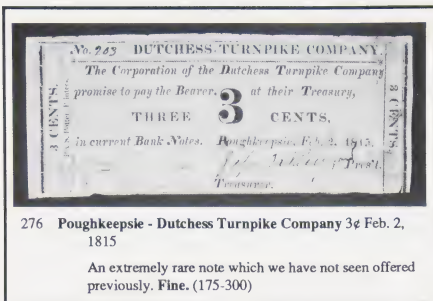 No. 203 DUTCHESS-TURNPIKE COMPANY.
The Corporation of the Dutchess Turnpike Company
promise to pay the Bearer, 3 at their Treasury,
THREE CENTS,
in current Bank Notes. Poughkeepsie, Feb. 2, 1815.
Pres't.
Treasurer.
3 CENTS.
3 CENTS.
276 Poughkeepsie - Dutchess Turnpike Company 3¢ Feb. 2,
1815
An extremely rare note which we have not seen offered
previously. Fine. (175-300)